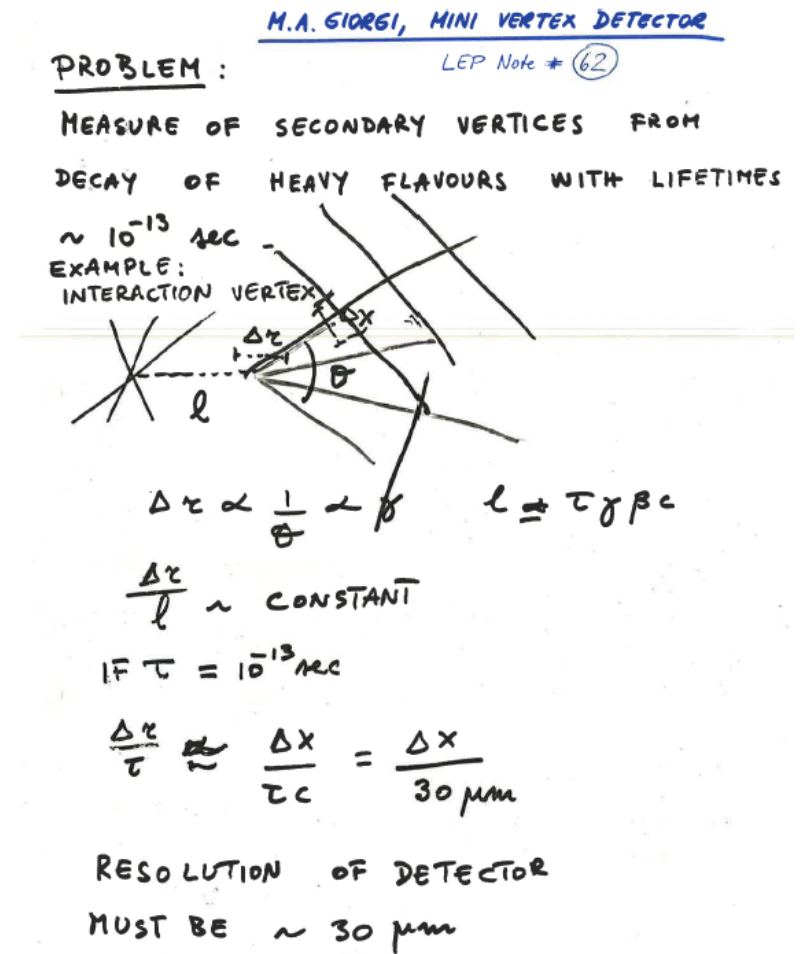 M.A. GIORGI, MINI VERTEX DETECTOR
LEP Note # 62
PROBLEM :
MEASURE OF SECONDARY VERTICES FROM
DECAY OF HEAVY FLAVOURS WITH LIFETIMES
~ 10^-13 sec
EXAMPLE:
INTERACTION VERTEX
Δx
Δr
θ
l
Δr ∝ 1/θ ∝ γ l ≃ τγβc
Δr/l ~ CONSTANT
IF τ = 10^-13 sec
Δτ/τ ≈ Δx/τc = Δx/30 μm
RESOLUTION OF DETECTOR
MUST BE ~ 30 μm